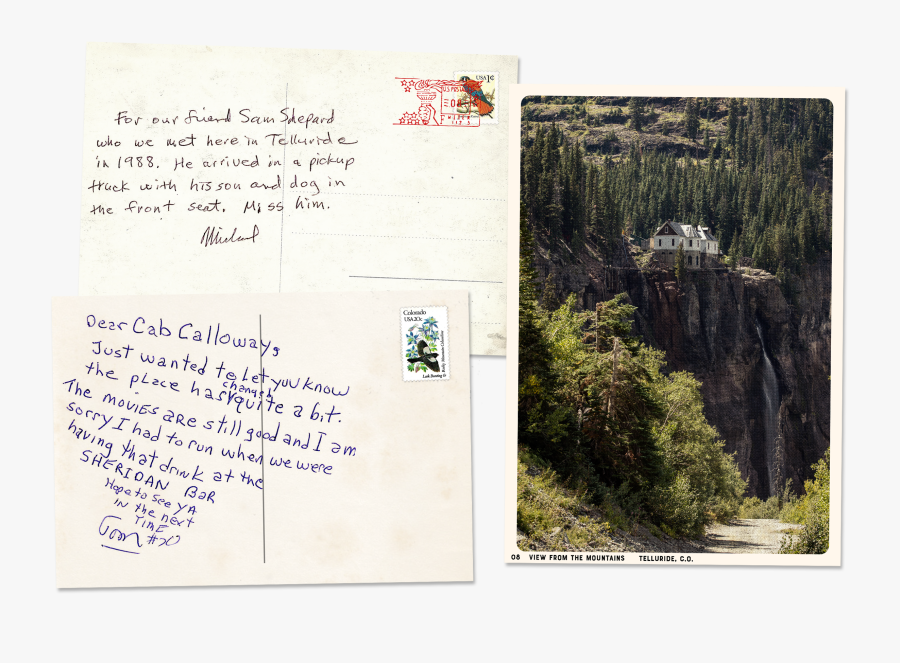 For our friend Sam Shepard
who we met here in Telluride
in 1988. He arrived in a pickup
truck with his son and dog in
the front seat. Miss him.
Michael
USA 1¢
U.S. POSTAGE
Dear Cab Calloway,
Just wanted to let you know
the place has changed quite a bit.
The movies are still good and I am
sorry I had to run when we were
having that drink at the
SHERIDAN BAR
Hope to see YA
in the next
TIME
Tom #20
Colorado
USA 20c
Lark Bunting &
Rocky Mountain Columbine
08 VIEW FROM THE MOUNTAINS TELLURIDE, C.O.